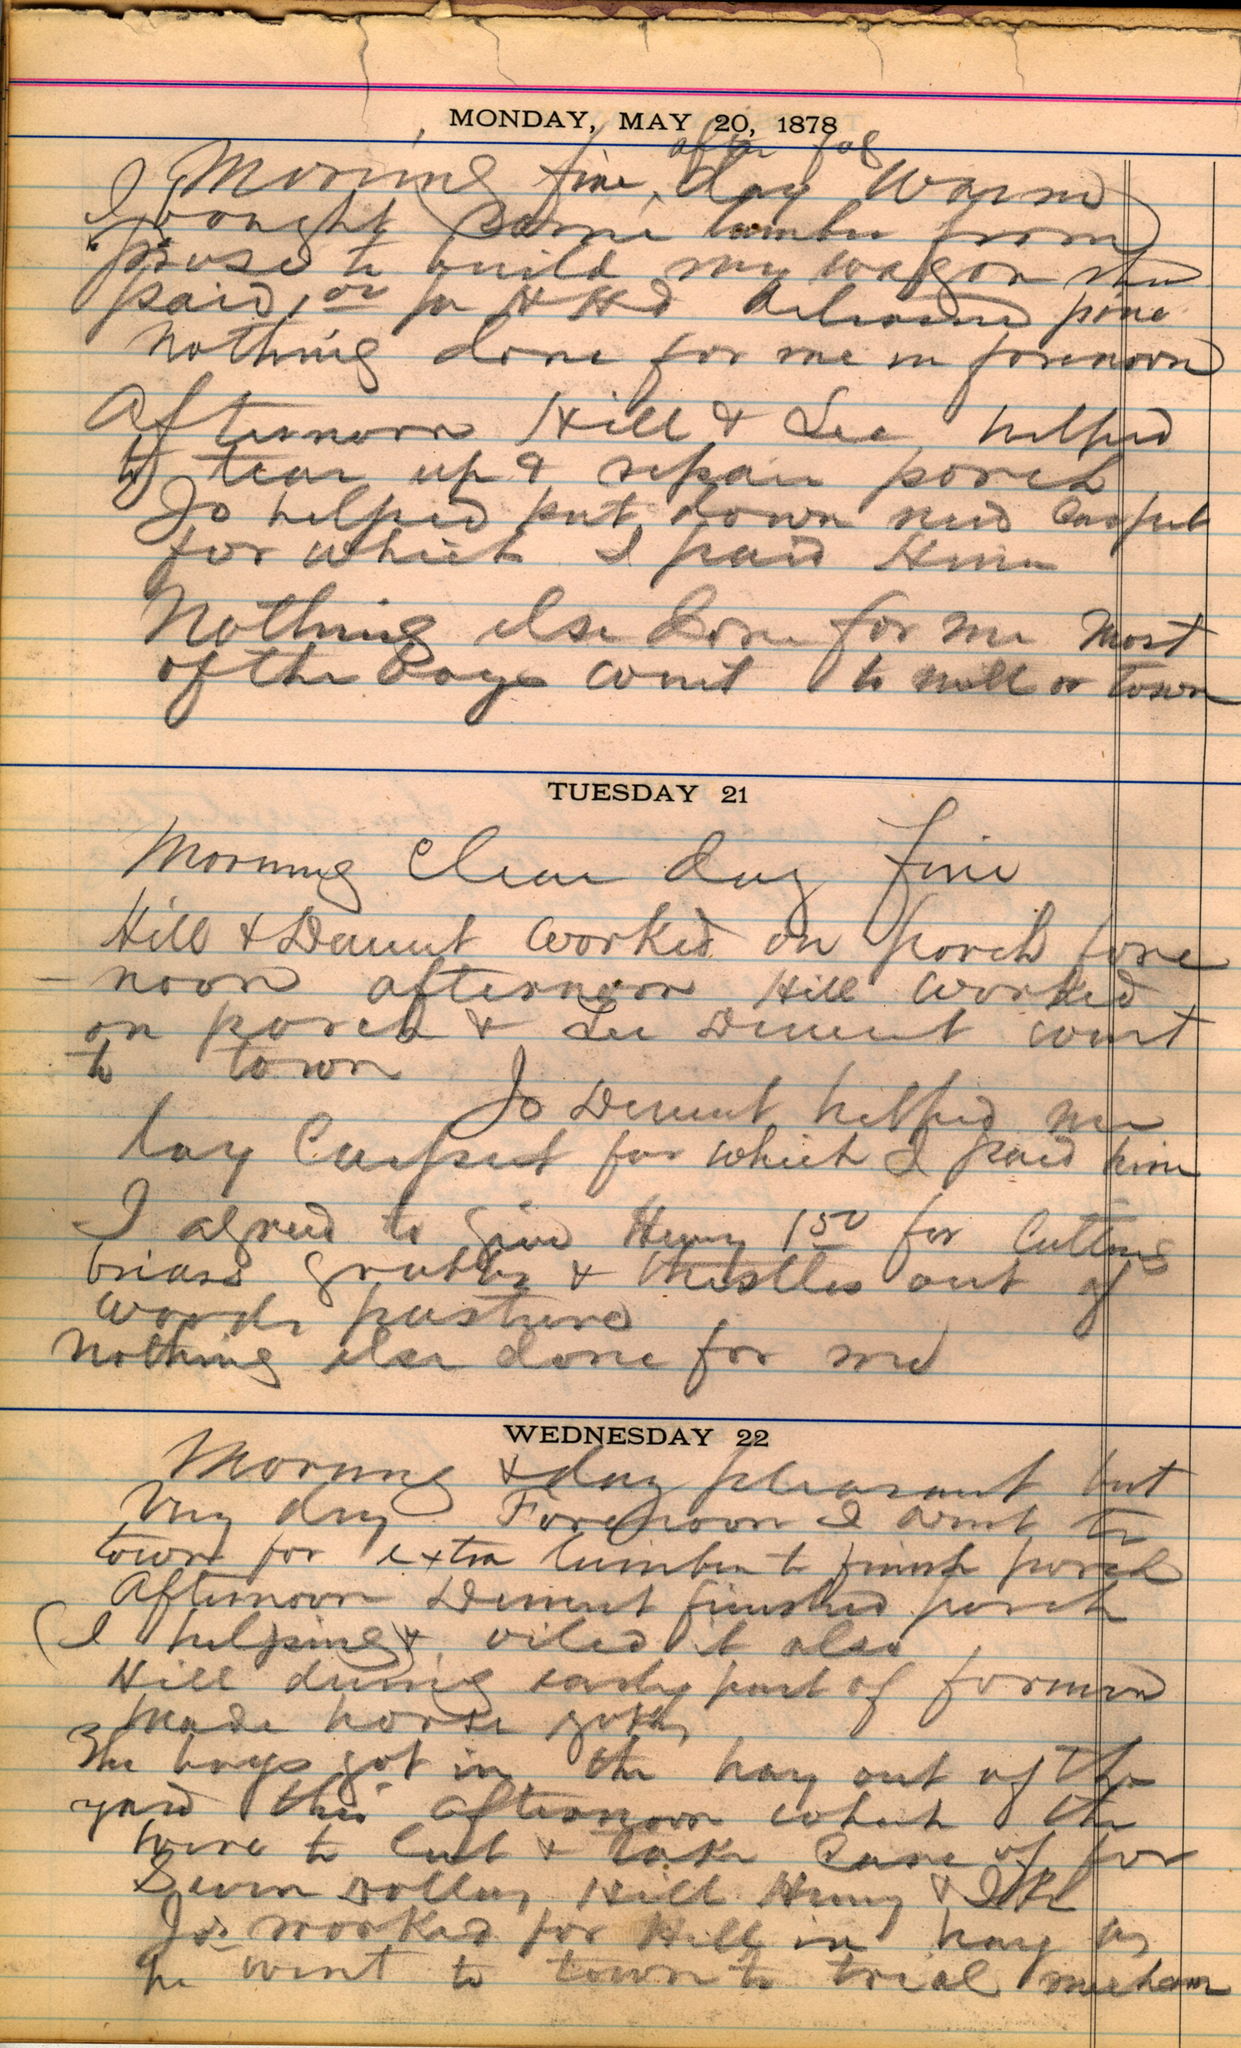 MONDAY, MAY 20, 1878
after fog
Morning fine, day Warm
I bought some lumber from
to build my wagon
paid for
Nothing done for me in forenoon
Afternoon Hill & Lee helped
to tear up & repair porch
Jo helped put down new Carpet
for which I paid Him
Nothing else done for me Most
of the Boys went to mill or town
TUESDAY 21
Morning Clear day fine
Hill & Dement Worked on porch fore
-noon afternoon Hill Worked
on porch & Lee Dement went
to town
Jo Dement helped me
lay Carpet for which I paid him
I agreed to give Henry 1 50 for Cutting
briars grubs & thistles out of
woods pasture
Nothing else done for me
WEDNESDAY 22
Morning & day pleasant but
Very dry Forenoon I went to
town for extra lumber to finish porch
Afternoon Dement finished porch
(I helping) & oiled it also
Hill during early part of forenoon
Made horse yoke
The boys got in the hay out of the
yard this afternoon which the
were to Cut & take Care of for
Seven Dollars Hill Henry &
Jo worked for Hill in hay as
he went to town to trial